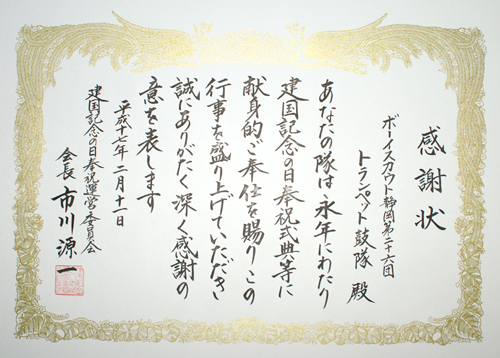 感謝状
ボーイスカウト静岡第二十六団
トランペット鼓隊 殿
あなたの隊は永年にわたり
建国記念の日奉祝式典等に
献身的ご奉仕を賜りこの
行事を盛り上げていただき
誠にありがたく深く感謝の
意を表します
平成十七年二月十一日
建国記念の日奉祝運営委員会
会長 市川源一